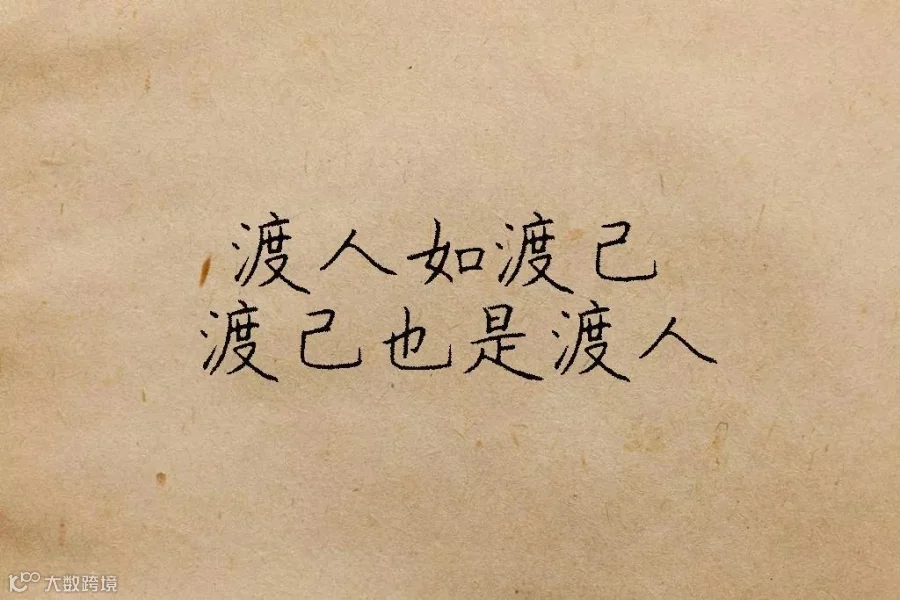 渡人如渡己
渡己也是渡人
大数跨境